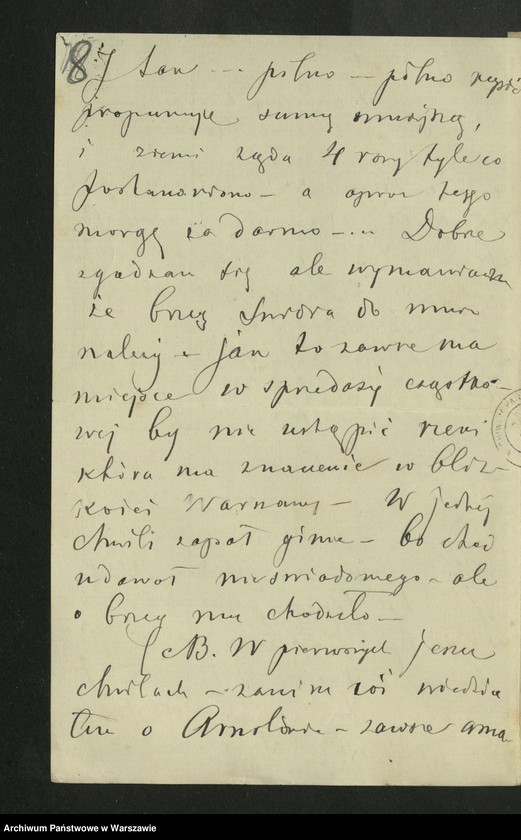 8
I tam --- pilno -- pilno
proponuje sumę mniejszą,
i ziemi żąda 4 razy tyle co
postanowiono – a oprócz tego
morgę za darmo –... Dobrze
zgadzam się ale wymawiam
że brzeg Świdra do mnie
należy – jak to zawsze ma
miejsce w sprzedaży cząstko-
wej by nie ustąpić rzeki
która ma znaczenie w bliz-
kości Warszawy – W jednej
chwili zapał ginie – bo choć
udawał nieświadomego – ale
o brzeg mu chodziło –
(NB. W pierwszych jeszcze
chwilach – zanim coś wiedzia
łem o – zawsze
Archiwum Państwowe w Warszawie